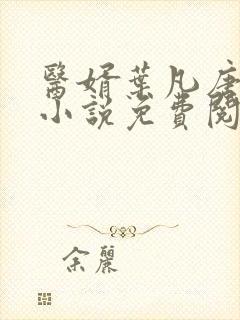 醫婿葉凡唐
小說免費閱
余麗